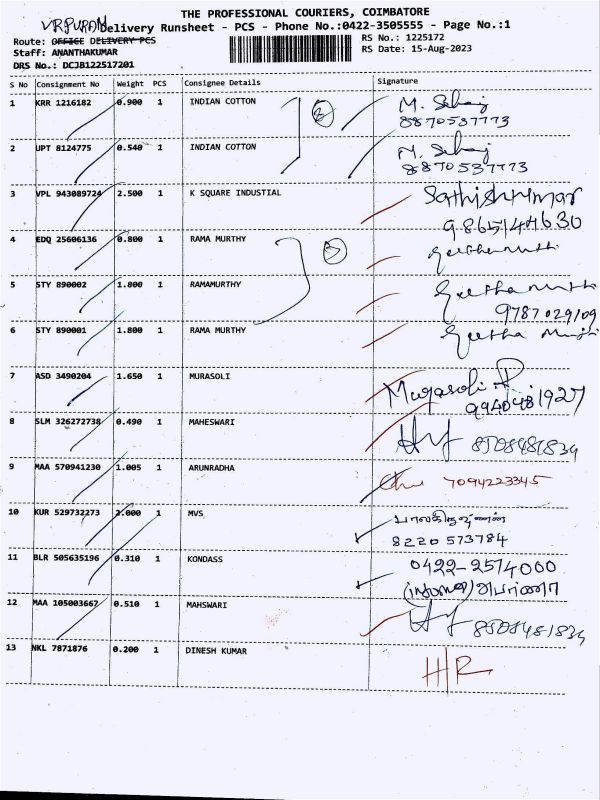 THE PROFESSIONAL COURIERS, COIMBATORE
VRPURAM
Delivery Runsheet - PCS - Phone No.:0422-3505555 - Page No.:1
Route: OFFICE DELIVERY PCS
RS No.: 1225172
Staff: ANANTHAKUMAR
RS Date: 15-Aug-2023
DRS No.: DCJB122517201
S No Consignment No Weight PCS Consignee Details Signature
1 KRR 1216182 0.900 1 INDIAN COTTON
8870537773
2 UPT 8124775 0.540 1 INDIAN COTTON
8870537773
3 VPL 943089724 2.500 1 K SQUARE INDUSTIAL Sathishkumar
9865144630
4 EDQ 25606136 0.800 1 RAMA MURTHY
5 STY 890002 1.800 1 RAMAMURTHY
9787029109
6 STY 890001 1.800 1 RAMA MURTHY
7 ASD 3490204 1.650 1 MURASOLI Murasoli
9940481927
8 SLM 326272738 0.490 1 MAHESWARI 8508481834
9 MAA 570941230 1.005 1 ARUNRADHA 7094223345
10 KUR 529732273 2.000 1 MVS பாலகிருஷ்ணன்
8220573784
11 BLR 505635196 0.310 1 KONDASS 0422-2574000
12 MAA 105003667 0.510 1 MAHSWARI 8508481834
13 NKL 7871876 0.200 1 DINESH KUMAR H/R